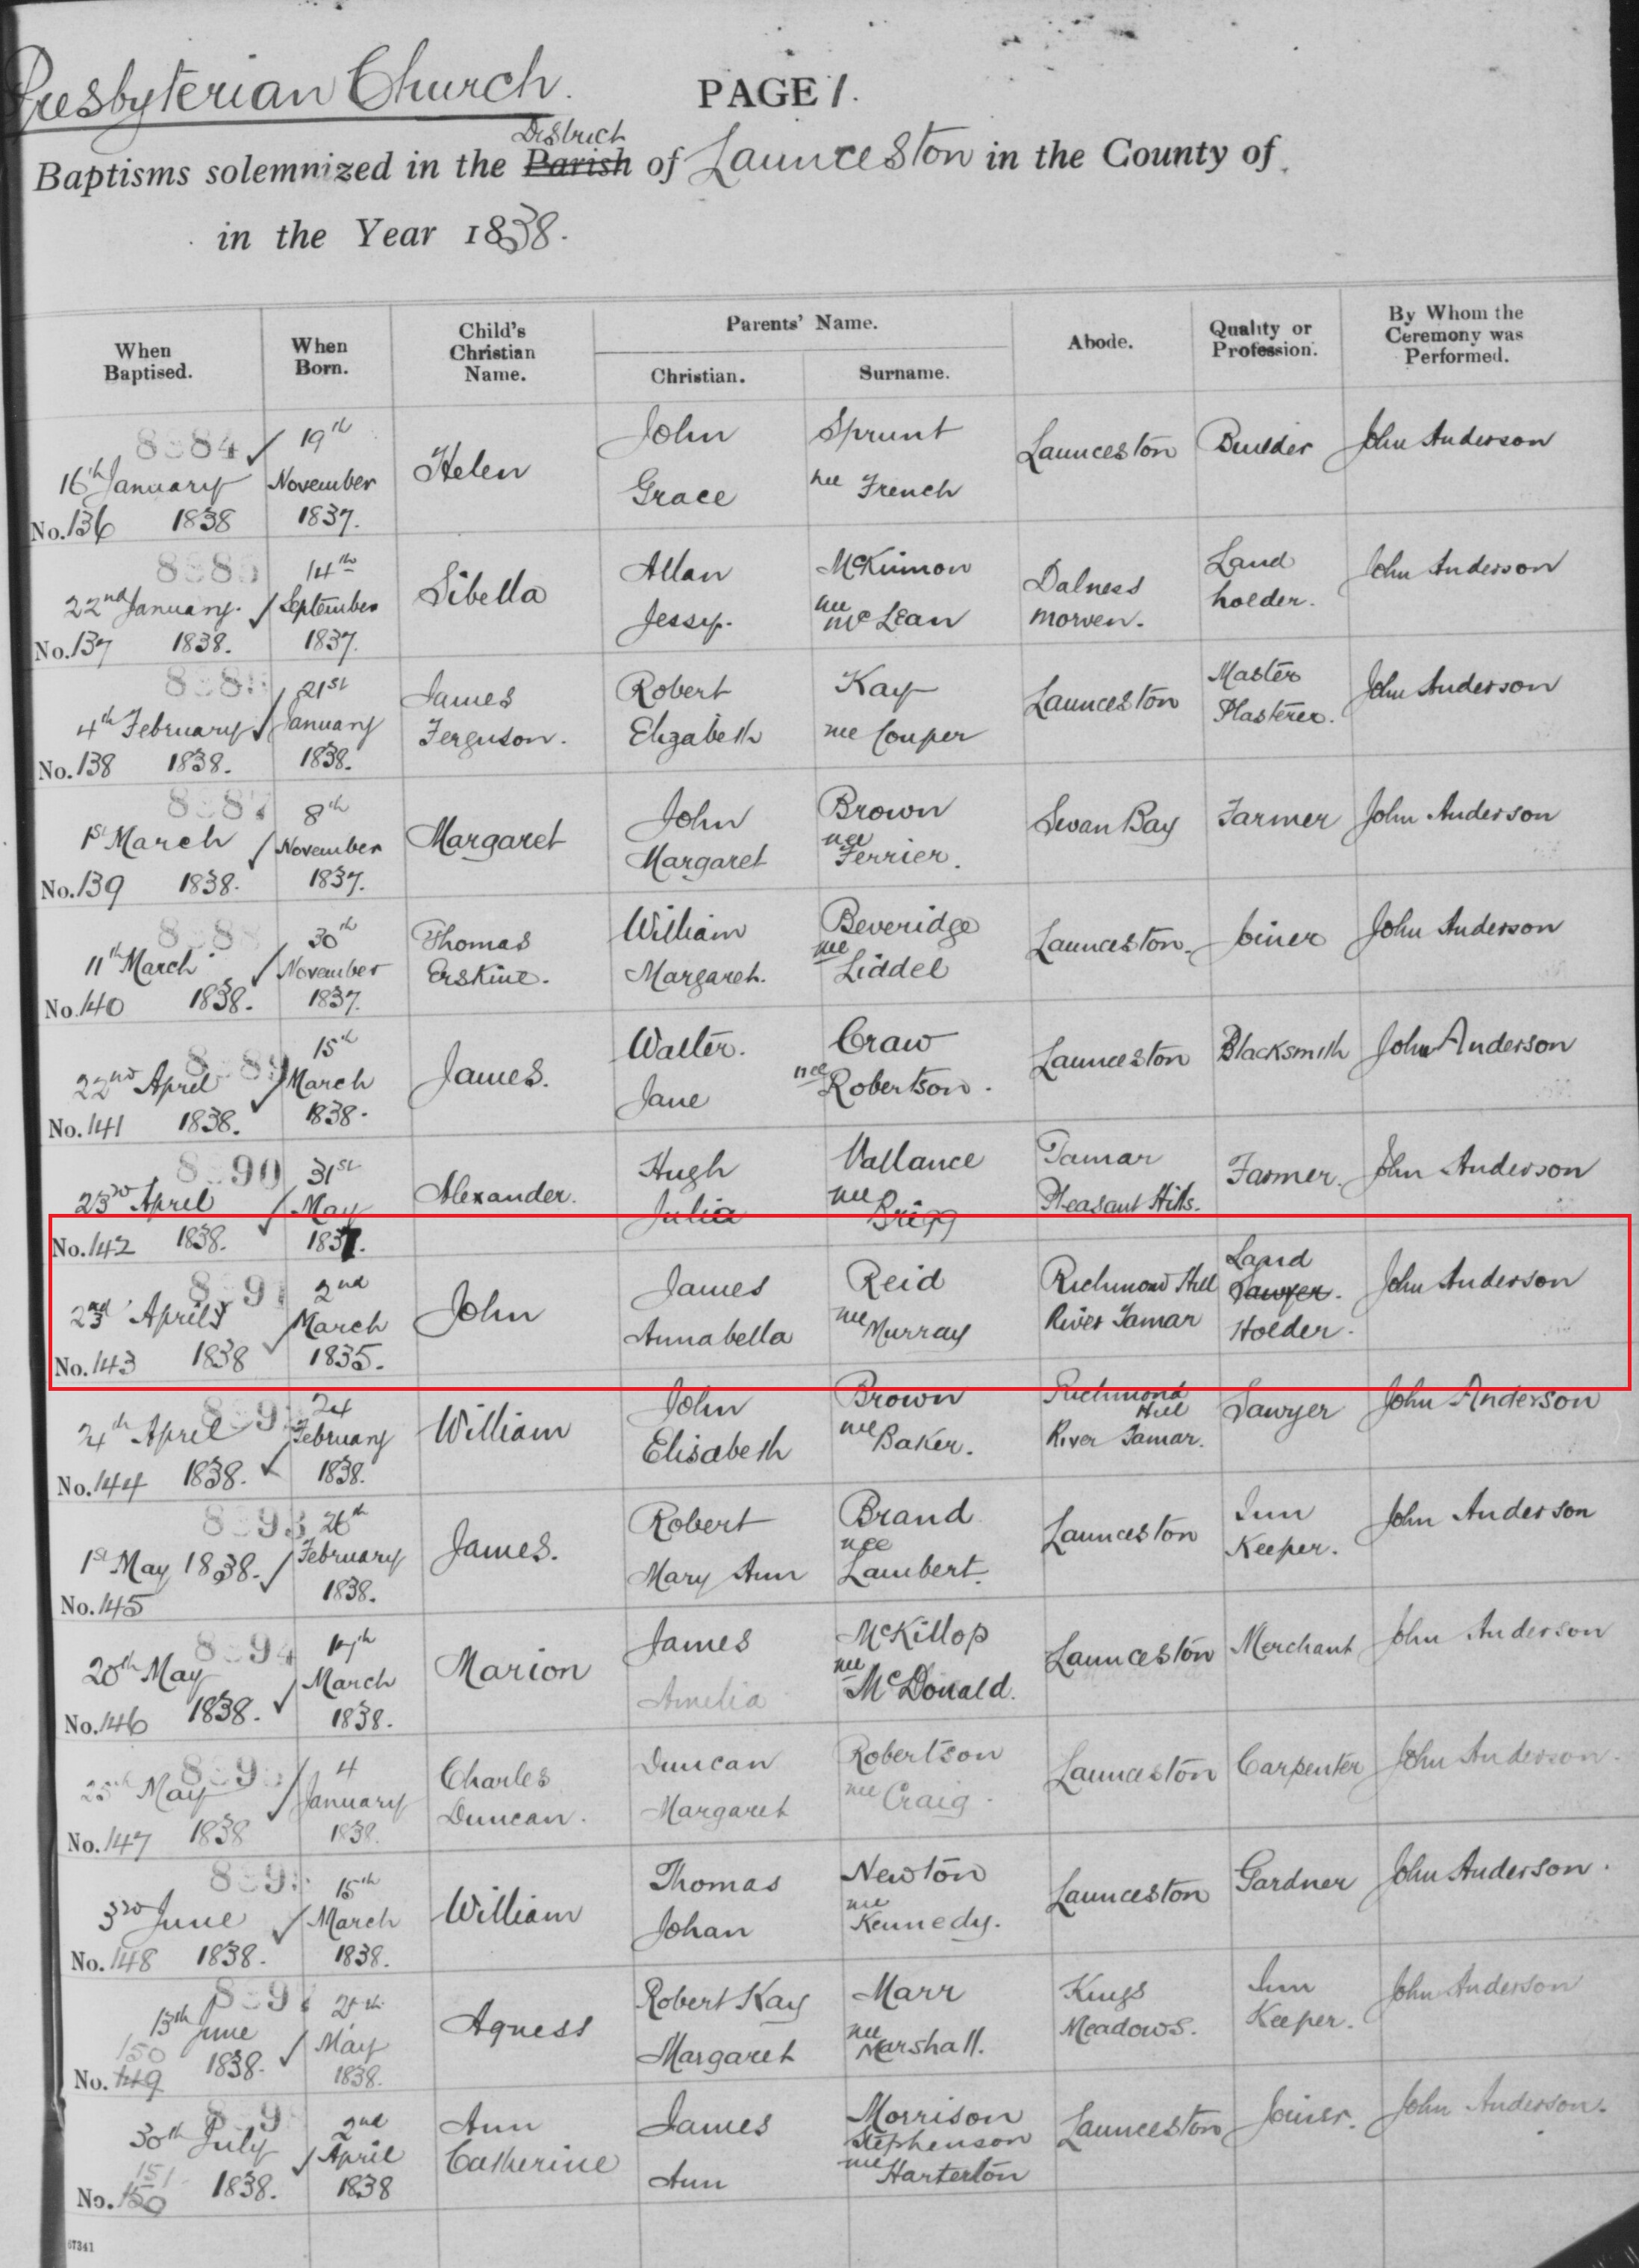 Presbyterian Church.
PAGE 1.
District
Baptisms solemnized in the Parish of Launceston in the County of
in the Year 1838.
When Baptised.
When Born.
Child's Christian Name.
Parents' Name.
Christian.
Surname.
Abode.
Quality or Profession.
By Whom the Ceremony was Performed.
16th January 1838 No. 136
19th November 1837.
Helen
John Sprunt
Grace nee French
Launceston
Builder
John Anderson
22nd January. 1838. No. 137
14th September 1837.
Sibella
Allan McKinnon
Jessy. nee McLean
Dalness Morven.
Land holder.
John Anderson
4th February 1838. No. 138
21st January 1838.
James Ferguson.
Robert Kay
Elizabeth nee Couper
Launceston
Master Plasterer.
John Anderson
1st March 1838. No. 139
8th November 1837.
Margaret
John Brown
Margaret nee Ferrier.
Swan Bay
Farmer
John Anderson
11th March 1838. No. 140
30th November 1837.
Thomas Erskine.
William Beveridge
Margaret. nee Liddel
Launceston.
Joiner
John Anderson
22nd April 1838. No. 141
15th March 1838.
James.
Walter. Craw
Jane nee Robertson.
Launceston
Blacksmith
John Anderson
8390
23rd April 1838. No. 142
31st May 1837.
Alexander.
Hugh Vallance
Julia nee Brigg
Tamar Pleasant Hills.
Farmer.
John Anderson
23rd April 1838 No. 143
2nd March 1835.
John
James Reid
Annabella nee Murray
Richmond Hill River Tamar
Land Sawyer. Holder.
John Anderson
24th April 1838. No. 144
24 February 1838.
William
John Brown
Elisabeth nee Baker.
Richmond Hill River Tamar.
Sawyer
John Anderson
1st May 1838. No. 145
26th February 1838.
James.
Robert Brand
Mary Ann nee Lambert.
Launceston
Inn Keeper.
John Anderson
20th May 1838. No. 146
17th March 1838.
Marion
James McKillop
Amelia nee McDonald.
Launceston
Merchant
John Anderson
25th May 1838 No. 147
4 January 1838.
Charles Duncan.
Duncan Robertson
Margaret nee Craig.
Launceston
Carpenter
John Anderson.
3rd June 1838. No. 148
15th March 1838.
William
Thomas Newton
Johan nee Kennedy.
Launceston
Gardner
John Anderson.
13th June 1838. 150 No. 149
May 1838.
Agness
Robert Kay Marr
Margaret nee Marshall.
Kings Meadows.
Inn Keeper.
John Anderson
30th July 1838. 151 No. 150
2nd April 1838
Ann Catherine
James Morrison Stephenson
Ann nee Harterton
Launceston
Joiner.
John Anderson.
67341